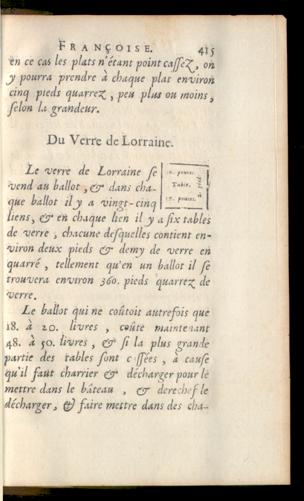 FRANÇOISE. 415
en ce cas les plats n'étant point cassez, on
y pourra prendre à chaque plat environ
cinq pieds quarrez, peu plus ou moins,
selon la grandeur.
Du Verre de Lorraine.
Le verre de Lorraine se
vend au ballot, & dans cha-
que ballot il y a vingt-cinq
liens, & en chaque lien il y a six tables
pouces.
Table.
pouces.
pied
de verre, chacune desquelles contient en-
viron deux pieds & demy de verre en
quarré, tellement qu'en un ballot il se
trouvera environ 360. pieds quarrez de
verre.
Le ballot qui ne coûtoit autrefois que
18. à 20. livres, coûte maintenant
48. à 50. livres, & si la plus grande
partie des tables sont c ssées, à cause
qu'il faut charrier & décharger pour le
mettre dans le bâteau, & derechef le
décharger, & faire mettre dans des cha-